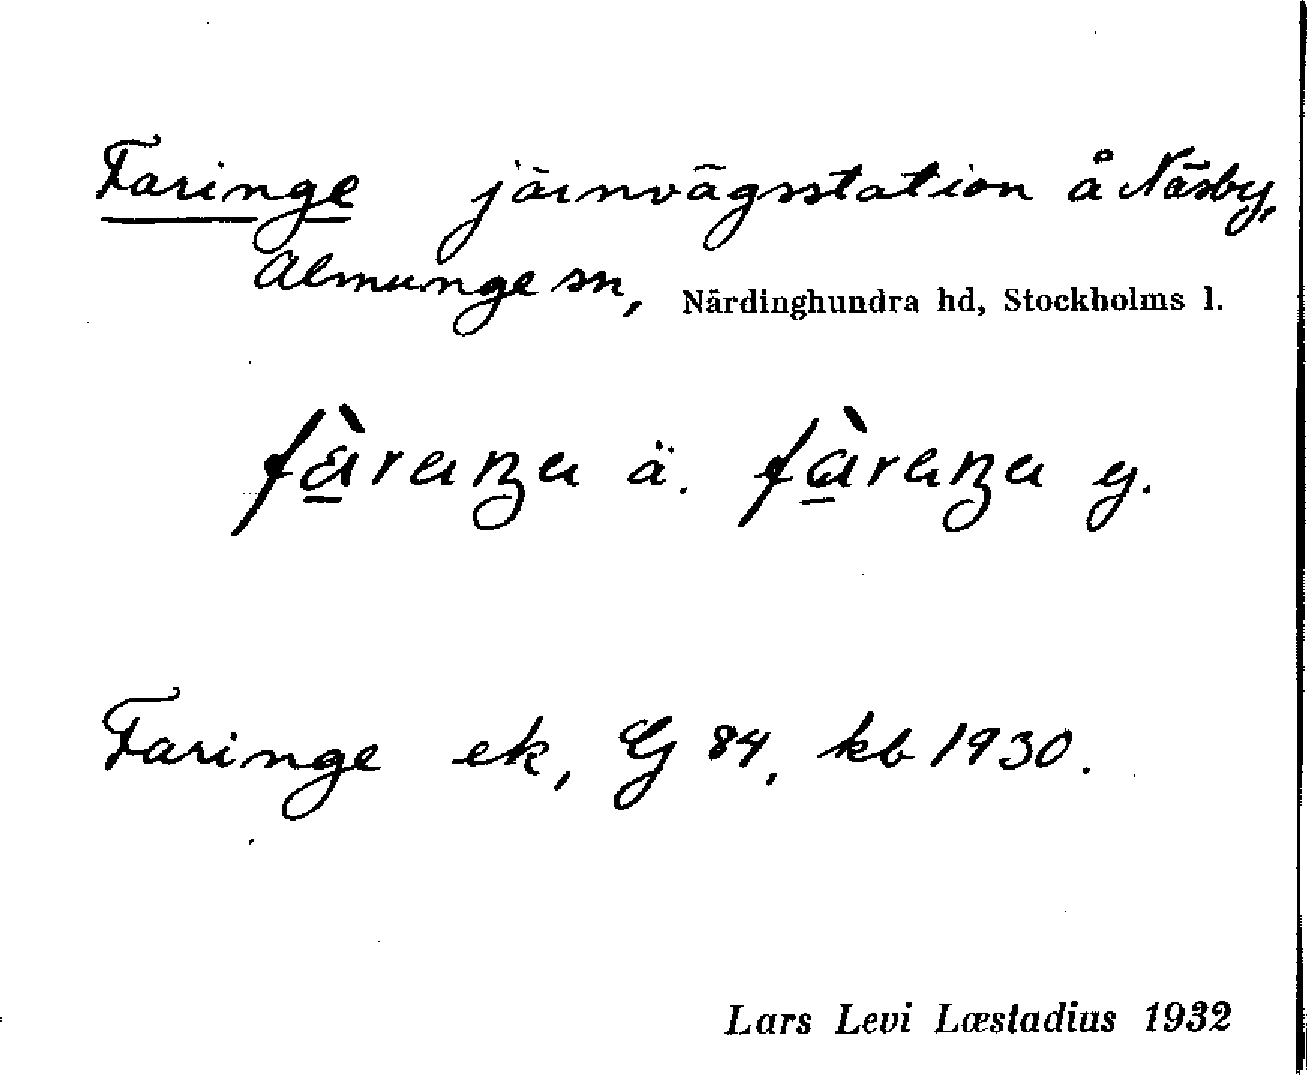 Faringe järnvägsstation å Näsby,
Almunge sn, Närdinghundra hd, Stockholms l.
ä. y.
Faringe ek, G 84, kb 1930.
Lars Levi Læstadius 1932